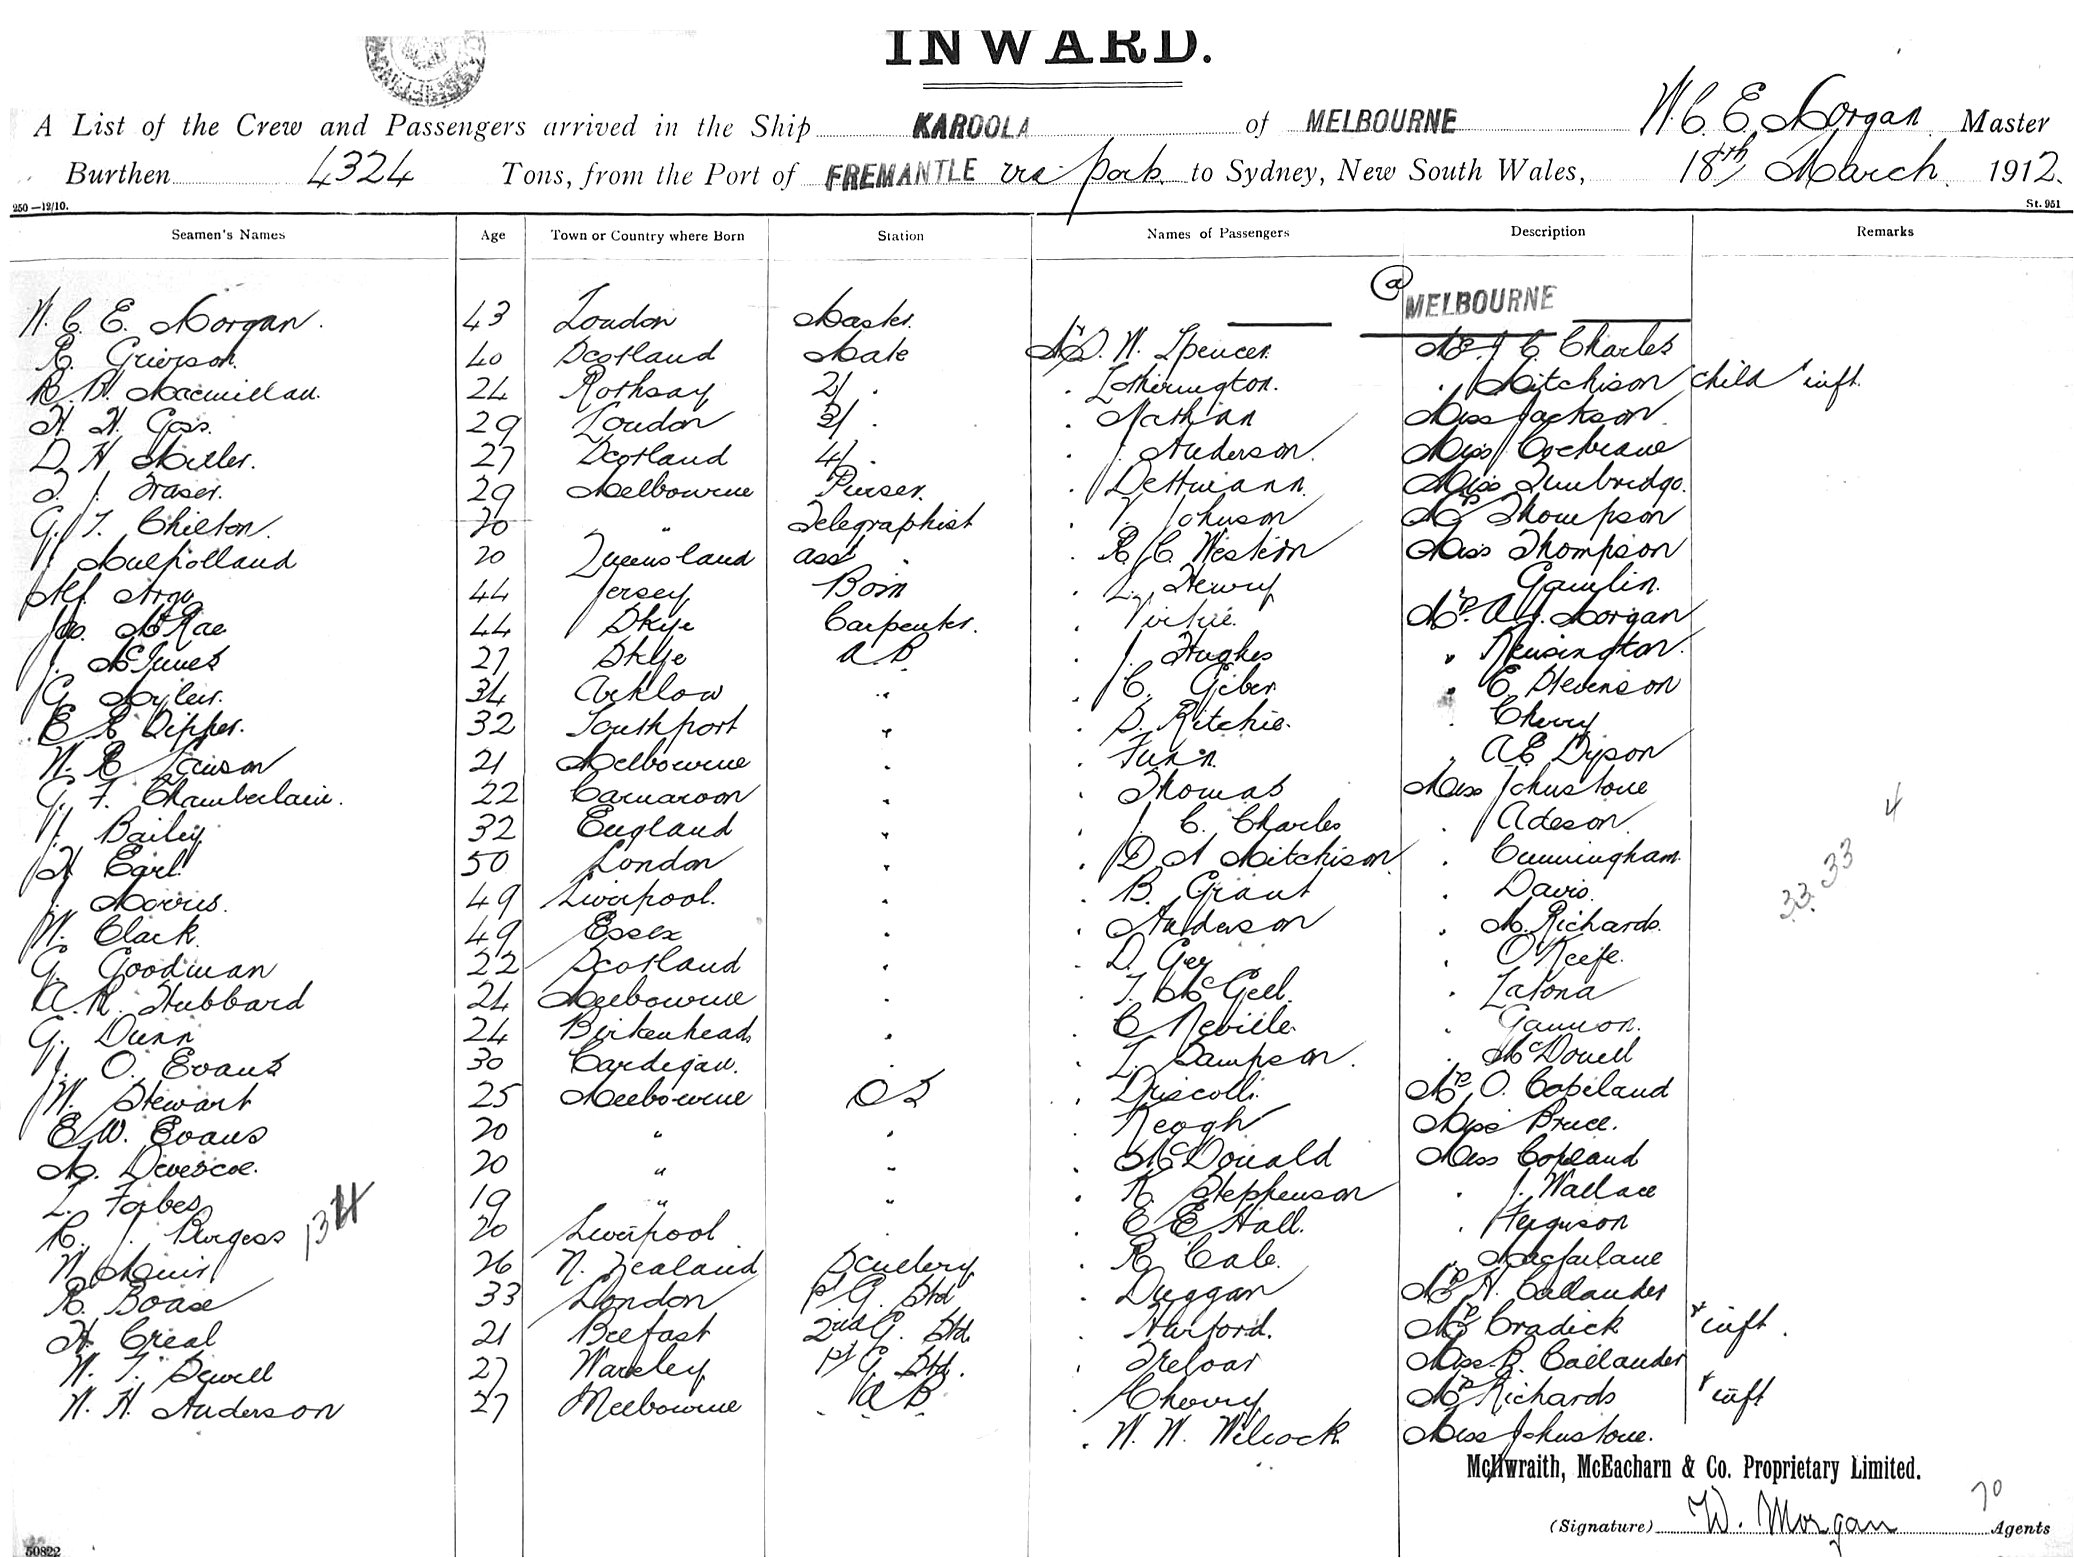 INWARD.
A List of the Crew and Passengers arrived in the Ship KAROOLA of MELBOURNE W. C. E. Morgan Master
Burthen 4324 Tons, from the Port of FREMANTLE via ports to Sydney, New South Wales, 18th March 1912.
250—12/10. St. 951
Seamen's Names Age Town or Country where Born Station Names of Passengers Description Remarks
@ MELBOURNE
W. C. E. Morgan. 43 London Master Mr D. W. Spencer. Mrs J C Charles
R. Grierson. 40 Scotland Mate . Mitchison child & inft.
R. H. Macmillan. 24 Rothsay 2/ . . Miss Jackson.
H. H. Goss. 29 London 3/ . . Nathan Miss Cochrane
D H Miller. 27 Scotland 4/ . . J. Anderson. Miss Tunbridge.
T. J. Fraser. 29 Melbourne Purser. . Dettmann. Mrs Thompson
G. T. Chilton. 20 " Telegraphist . V. Johnson Miss Thompson
J. Mulholland 20 Queensland asst . . R. C. Western Gamlin.
Alf. Argu 44 Jersey Bosn . L. Henry Mrs. A. J. Morgan
Jas. McRae 44 Skye Carpenter. . Virtue. " Kensington.
J. McInnes 27 Skye A B. . J. Hughes . E. Stevenson
G. Myler. 34 Arklow " . C. Giber . Cherry
E R Dipper. 32 Southport " . D. Ritchie. , A E Dyson
W. R. 21 Melbourne . . Funn. Miss Johnstone
G. F. Chamberlain. 22 Carnarvon . . Thomas . Adeson.
J. Bailey 32 England . . J. C. Charles . Cunningham.
H Earl. 50 London . . D A Mitchison . Davis.
J. Morris. 49 Liverpool. . . B. Grant . M. Richards.
W. Clark. 49 Essex . . Anderson . O'Keefe.
G. Goodman 22 Scotland . . D. Gey . Latona
A. R. Hubbard 24 Melbourne . . T. McGell. . Gannon.
G. Dunn 24 Birkenhead . . C Neville. . McDonell
J. O. Evans 30 Cardigan. . . L. Sampson. Mrs O. Copeland
W. Stewart 25 Melbourne O S . Driscoll. Miss Bruce.
E. W. Evans 20 " . . Keogh Miss Copeland
M. 20 " " . McDonald . J. Wallace
L. Forbes 19 " " . K. Stephenson . Ferguson
R. J. Burgess 20 Liverpool . . E E Hall. " Macfarlane
W Muir 26 N. Zealand Scullery . R Cale. Mrs H. Callander
R. Boase 33 London 1st G. Std . Duggan Mrs Cradick & inft.
H. Creal 21 Belfast 2nd G. Std. . Harford. Miss B. Callander
W. T. Sewell 27 1st G Std. . Treloar Mrs Richards & inft
W. H. Anderson 27 Melbourne A B . Cherry Miss Johnstone.
. W. W. Wilcock
4
33
33.
134
McIlwraith, McEacharn & Co. Proprietary Limited.
70
(Signature) W. Morgan Agents
50822